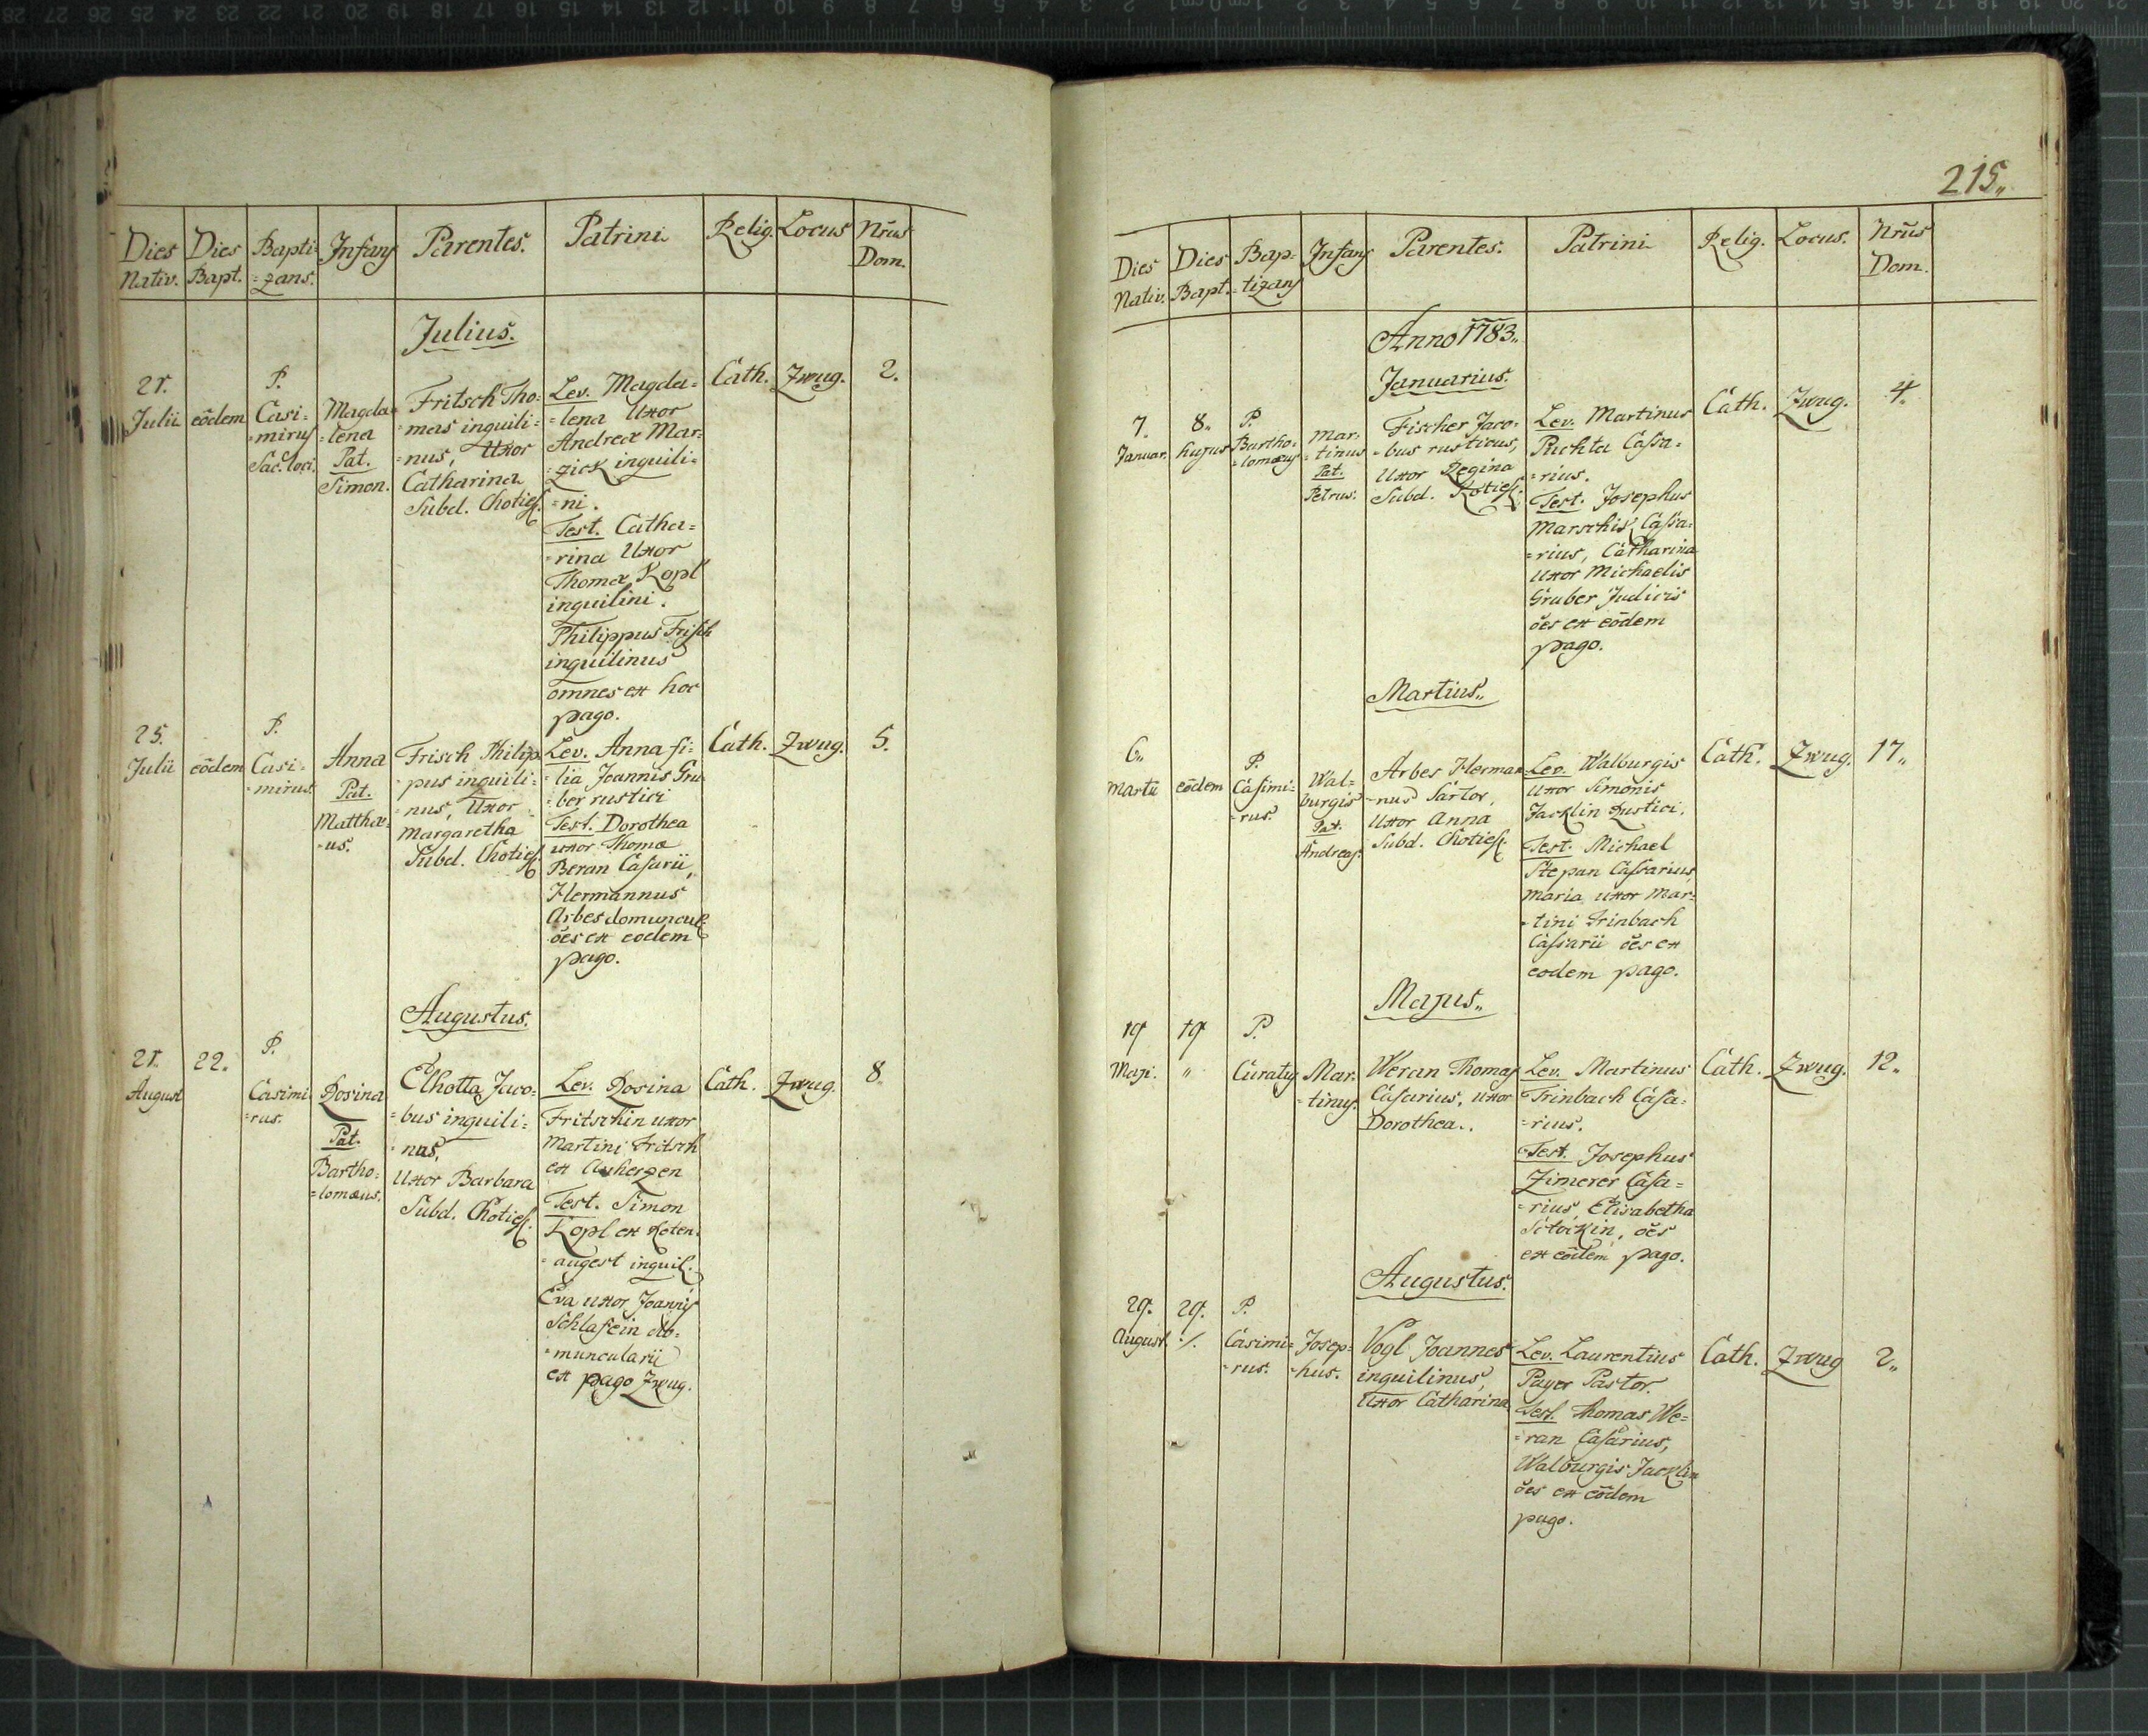 Dies Nativ.
Dies Bapt.
Bapti=
=zans.
Infans
Parentes.
Patrini
Relig.
Locus
Nrūs
Dom.
Julius.
21.
Julii
eōdem
P.
Casi=
=mirus
Sac. loci.
Magda=
=lena
Pat.
Simon.
Fritsch Tho=
=mas inquili=
=nus, Uxor
Catharina
Subd. Chotiess.
Lev. Magda=
=lena Uxor
Andreæ Mar=
=zick inquili=
=ni.
Test. Catha=
=rina Uxor
Thomæ Kopl
inquilini.
Philippus Frisch
inquilinus
omnes ex hoc
pago.
Cath.
Zwug.
2.
25.
Julii
eōdem
P.
Casi=
=mirus
Anna
Pat.
Matthæ=
=us.
Frisch Philip=
=pus inquili=
=nus, Uxor
Margaretha
Subd. Chotiess.
Lev. Anna fi=
=lia Joannis Gru=
=ber rustici
Test. Dorothea
uxor Thomæ
Beran Casarii,
Hermannus
Arbes domuncul.
ōes ex eodem
pago.
Cath.
Zwug.
5.
Augustus.
21.
August
22.
P.
Casimi=
=rus.
Rosina
Pat.
Bartho=
=lomæus.
Elhotta Jaco=
=bus inquili=
=nus,
Uxor Barbara
Subd. Chotiess.
Lev. Rosina
Fritschin uxor
Martini Fritsch
ex Auherzen
Test. Simon
Kopl ex Roten=
=augest inquil.
Eva uxor Joannis
Schlafein do=
=muncularii
ex pago Zwug.
Cath.
Zwug.
8.
215.
Dies
Nativ.
Dies
Bapt.
Bap=
=tizans
Infans
Parentes.
Patrini
Relig.
Locus.
Nrūs
Dom.
Anno 1783.
Januarius.
7.
Januar.
8.
hujus
P.
Bartho=
=lomæus
Mar=
=tinus
Pat.
Petrus.
Fischer Jaco=
=bus rusticus,
Uxor Regina
Subd. Kotiess.
Lev. Martinus
Puchta Casa=
=rius.
Test. Josephus
Marschik Casa=
=rius, Catharina
Uxor Michaelis
Gruber Judicis
ōes ex eōdem
pago.
Cath.
Zwug.
4.
Martius.
6.
Martii
eōdem
P.
Casimi=
=rus
Wal=
burgis
Pat.
Andreas.
Arbes Herman=
=nus Sartor,
Uxor Anna
Subd. Chotiess.
Lev. Walburgis
Uxor Simonis
Jacklin Rustici.
Test. Michael
Stepan Cassarius,
Maria uxor Mar=
=tini Trinbach
Cassarii ōes ex
eodem pago.
Cath.
Zwug.
17.
Majus.
19
Maji.
19
"
P.
Curatus
Mar=
=tinus.
Weran Thomas
Casarius, uxor
Dorothea..
Lev. Martinus
Trinbach Casa=
=rius.
Test. Josephus
Zimerer Casa=
=rius, Elisabetha
ōes
ex eōdem pago.
Cath.
Zwug.
12.
Augustus.
29.
August.
29.
./.
P.
Casimi=
=rus.
Josep=
=hus.
Vogl Joannes
inquilinus,
Uxor Catharina
Lev. Laurentius
Payer Pastor.
Test. Thomas We=
=ran Casarius,
Walburgis Jacklin
ōes ex eōdem
pago.
Cath.
Zwug
2.